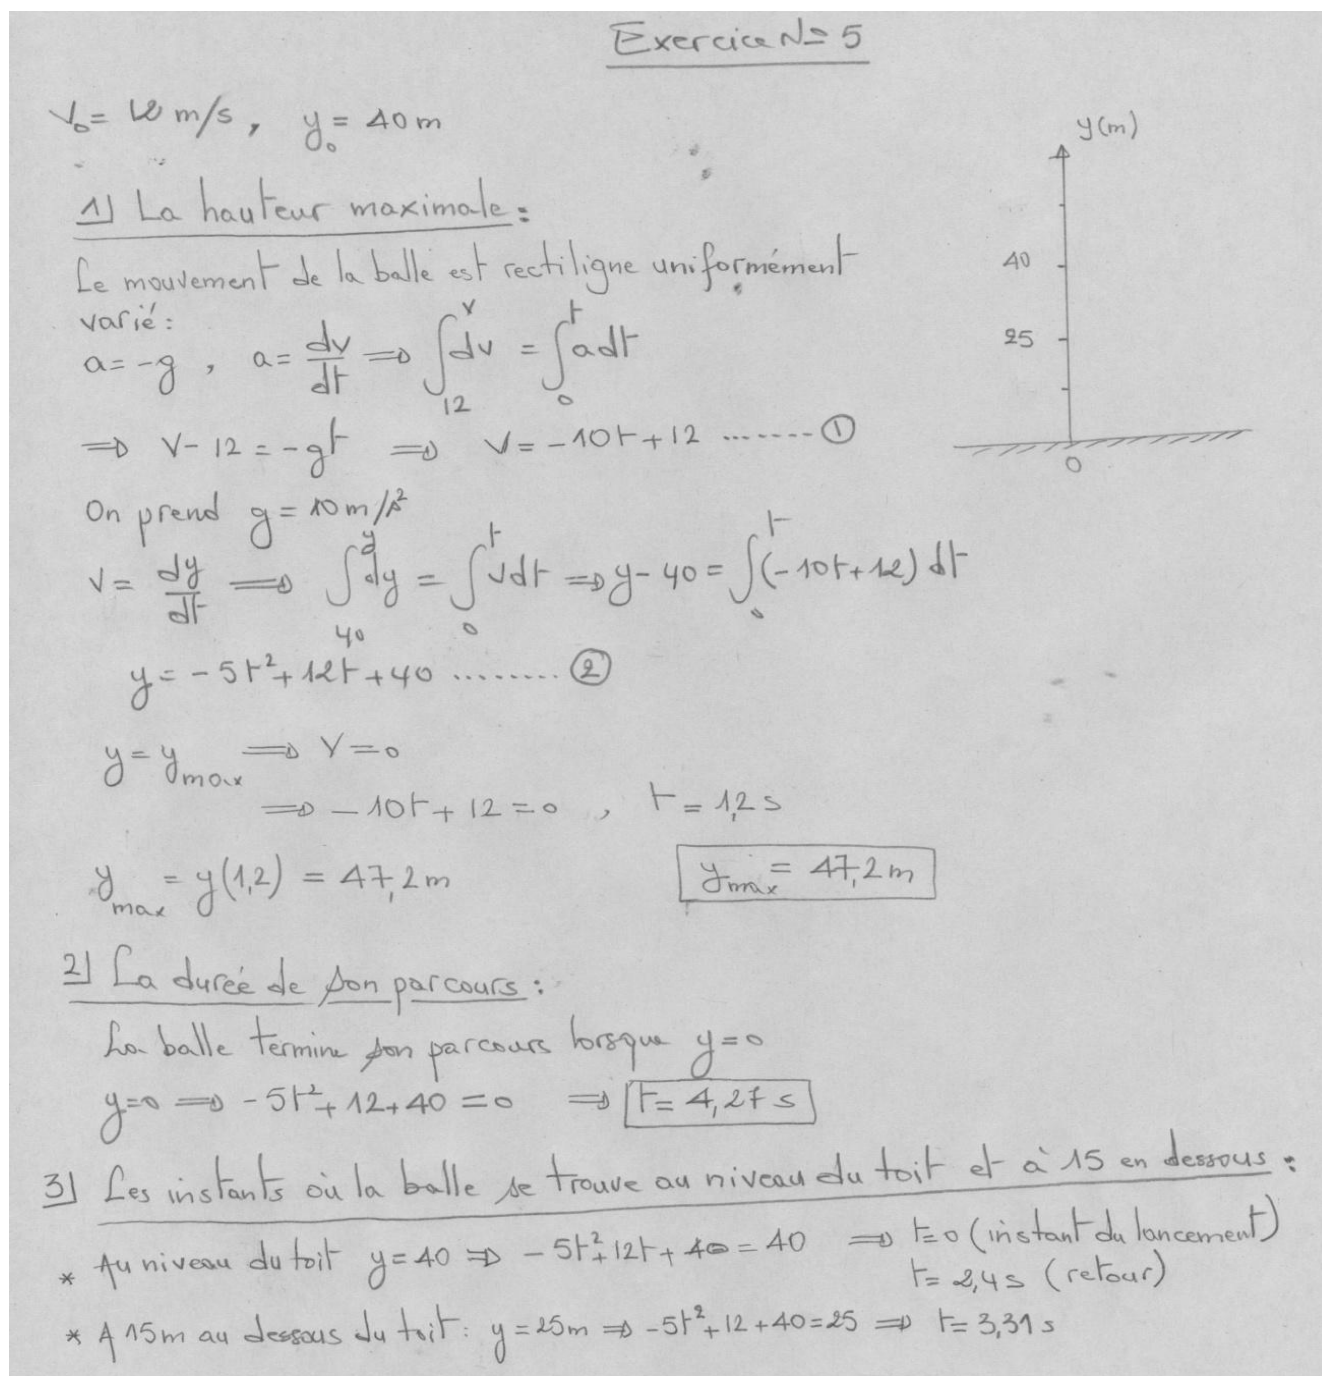 Exercice N= 5
V₀ = 12 m/s, y₀ = 40 m
y(m)
1) La hauteur maximale :
Le mouvement de la balle est rectiligne uniformément
40
varié :
25
a = -g , a = dv/dt ⇒ ∫₁₂^v dv = ∫₀^t a dt
⇒ V - 12 = -gt ⇒ V = -10t + 12 ........ ①
0
On prend g = 10 m/s²
V = dy/dt ⇒ ∫₄₀^y dy = ∫₀^t V dt ⇒ y - 40 = ∫₀^t (-10t + 12) dt
y = -5t² + 12t + 40 ......... ②
y = y_max ⇒ V = 0
⇒ -10t + 12 = 0 , t = 1,2 s
y_max = y(1,2) = 47,2 m
y_max = 47,2 m
2) La durée de son parcours :
La balle termine son parcours lorsque y = 0
y = 0 ⇒ -5t² + 12 + 40 = 0 ⇒ t = 4,27 s
3) Les instants où la balle se trouve au niveau du toit et à 15 en dessous :
* Au niveau du toit y = 40 ⇒ -5t² + 12t + 40 = 40 ⇒ t = 0 (instant du lancement)
t = 2,4 s (retour)
* A 15m au dessous du toit : y = 25m ⇒ -5t² + 12 + 40 = 25 ⇒ t = 3,31 s